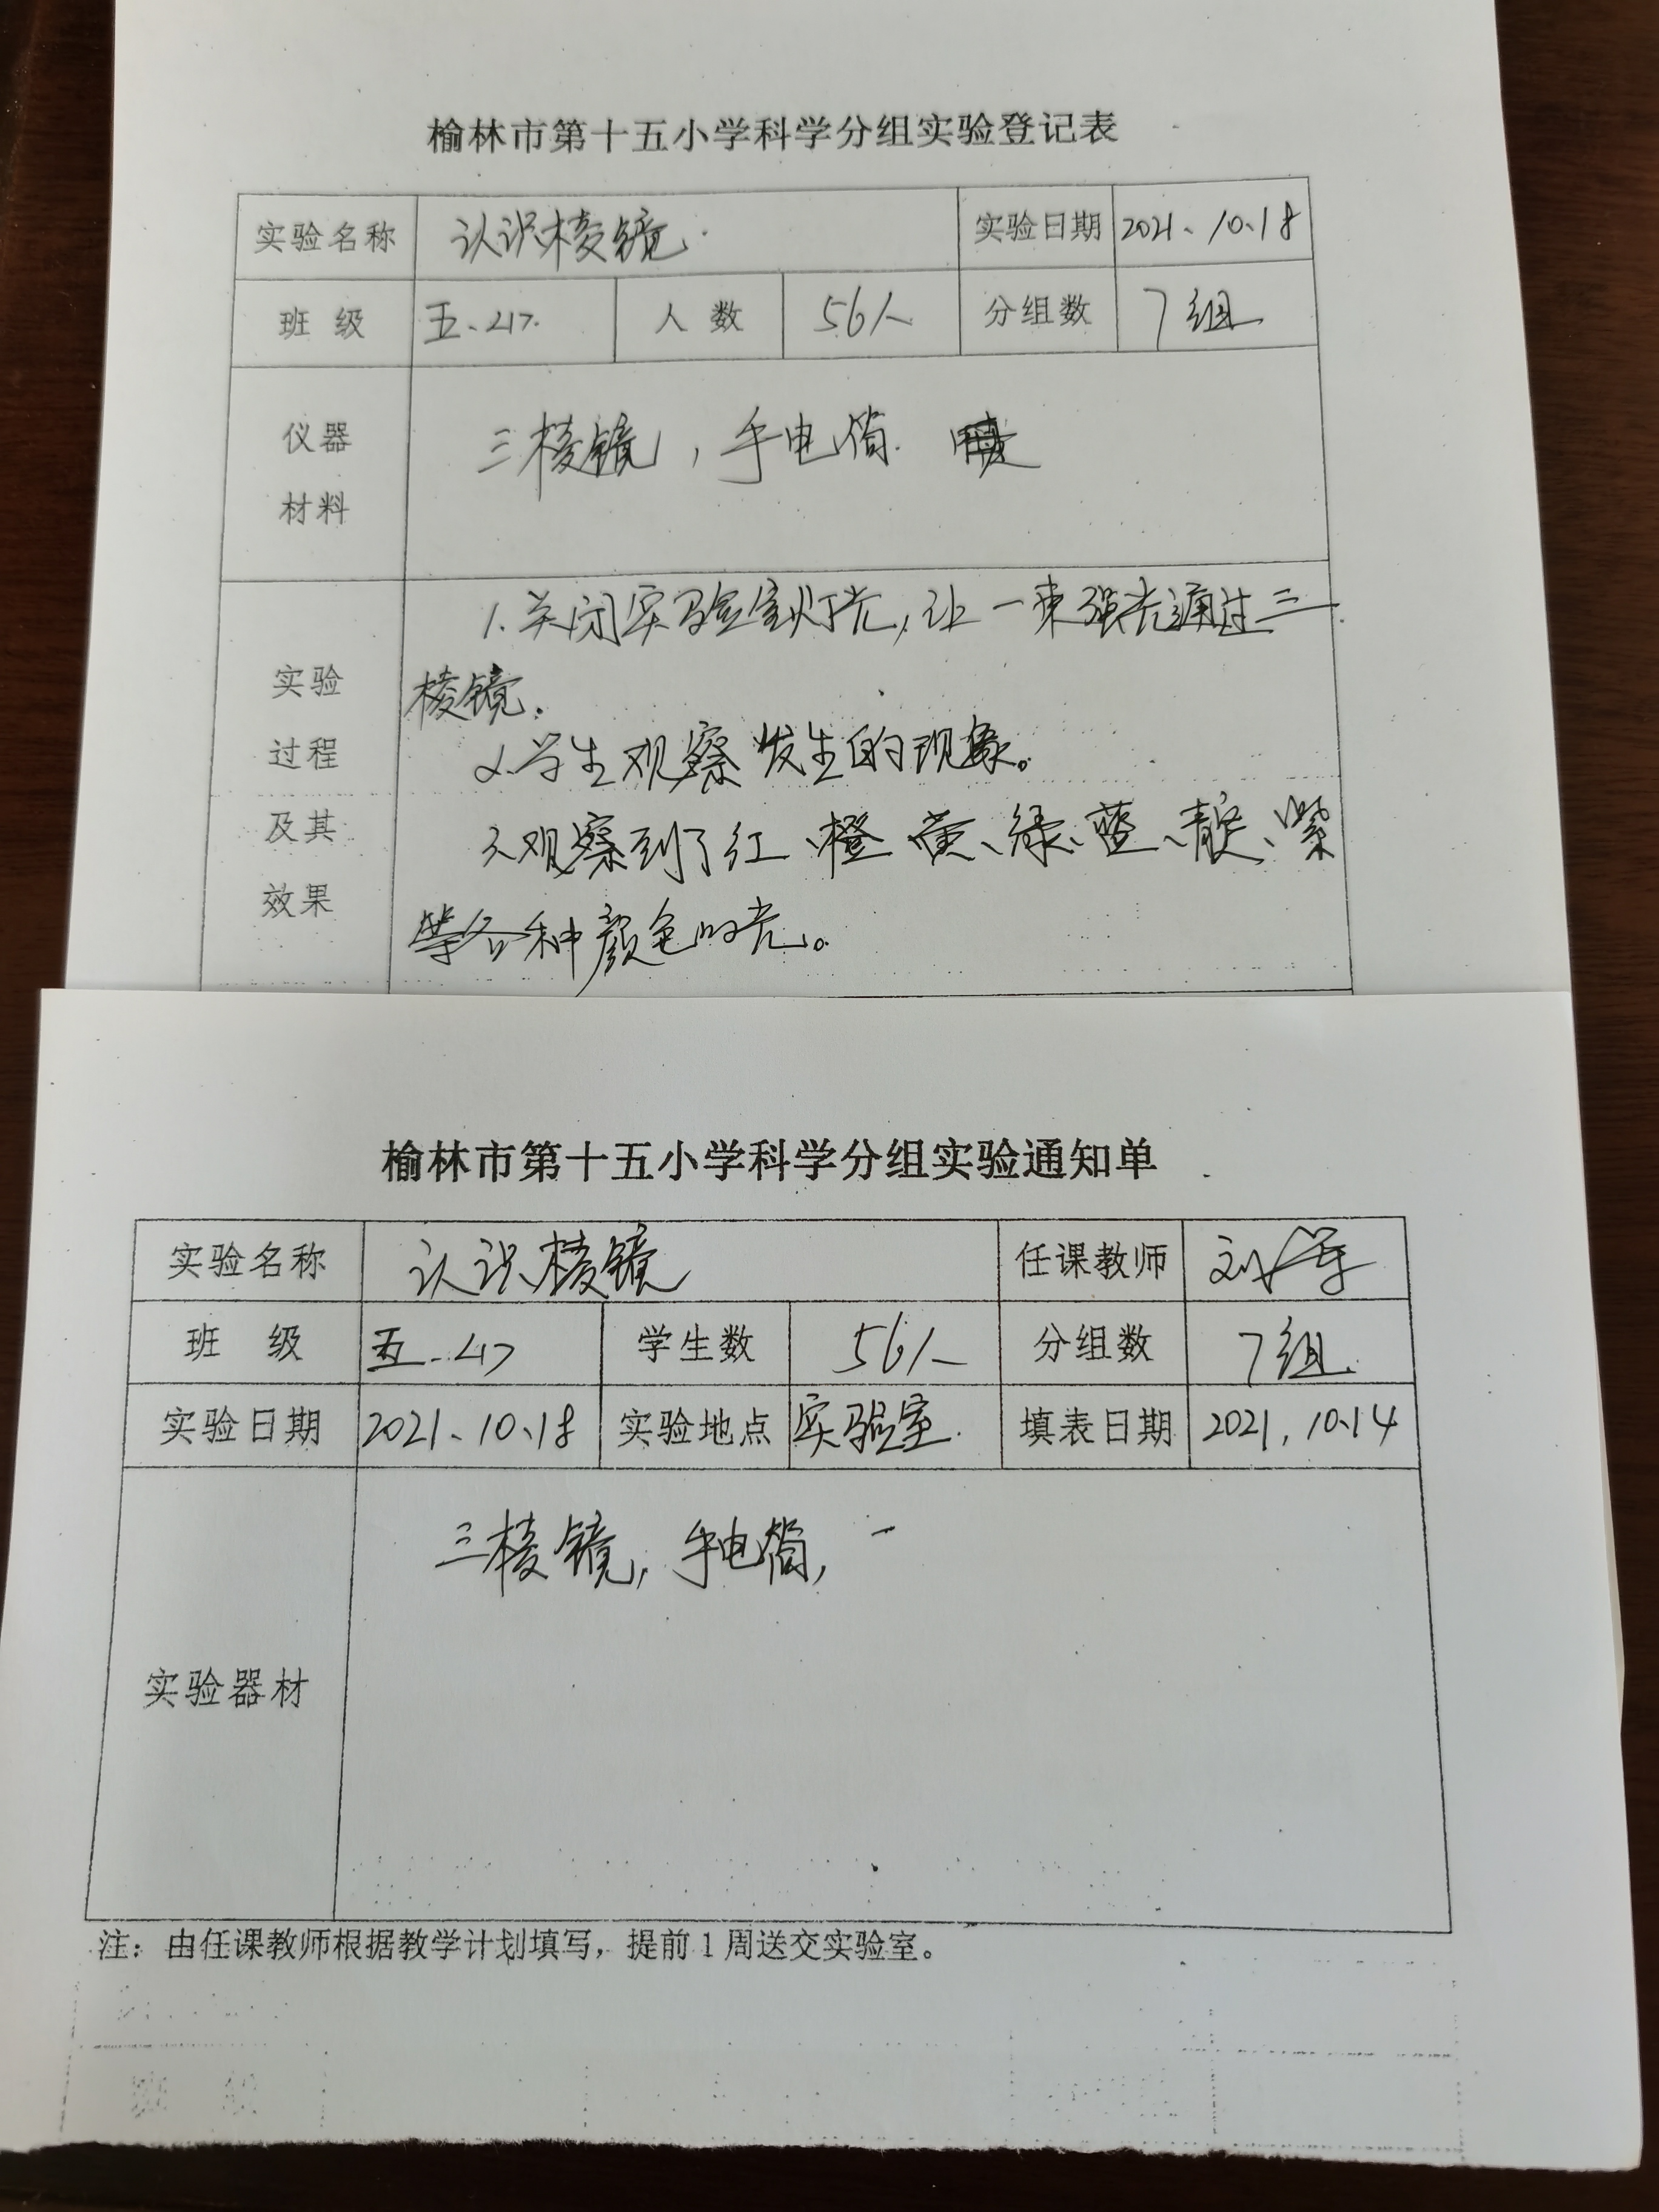 榆林市第十五小学科学分组实验登记表
实验名称 认识棱镜. 实验日期 2021、10、18
班级 五、 人数 56人 分组数 7组
仪器
材料
三棱镜，手电筒.
实验
过程
及其
效果
1.关闭实验室灯光,让一束强光通过三
棱镜.
2.学生观察发生的现象。
3.观察到了红、橙、黄、绿、蓝、靛、紫
等各种颜色的光。
榆林市第十五小学科学分组实验通知单
实验名称 认识棱镜 任课教师 刘
班 级 五.. 学生数 56人 分组数 7组.
实验日期 2021、10、18 实验地点 实验室. 填表日期 2021，10、14
实验器材 三棱镜，手电筒，
注：由任课教师根据教学计划填写，提前1周送交实验室。